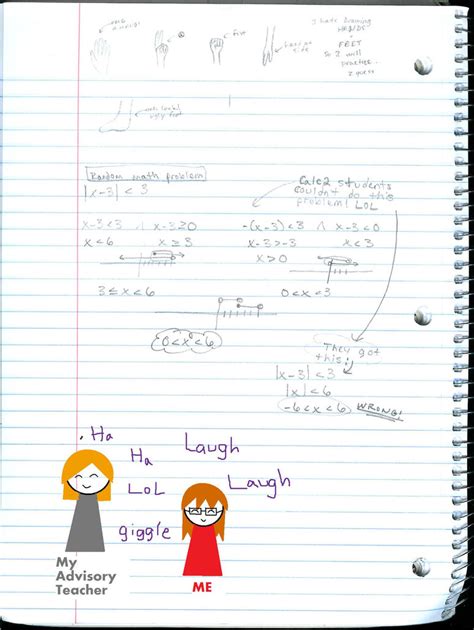 fist
I hate drawing
HANDS
+
FEET
So I will
practice.
I guess
Random math problem
|x-3| < 3
Calc2 students
couldn't do this
problem! LOL
x-3<3 ∧ x-3≥0
-(x-3)<3 ∧ x-3<0
x<6
x≥3
x-3>-3
x<3
x>0
3≤x<6
0<x<3
0<x<6
They got
this:
|x-3|<3
|x|<6
-6<x<6 WRONG!
Ha
Ha
LOL
giggle
Laugh
Laugh
My
Advisory
Teacher
ME